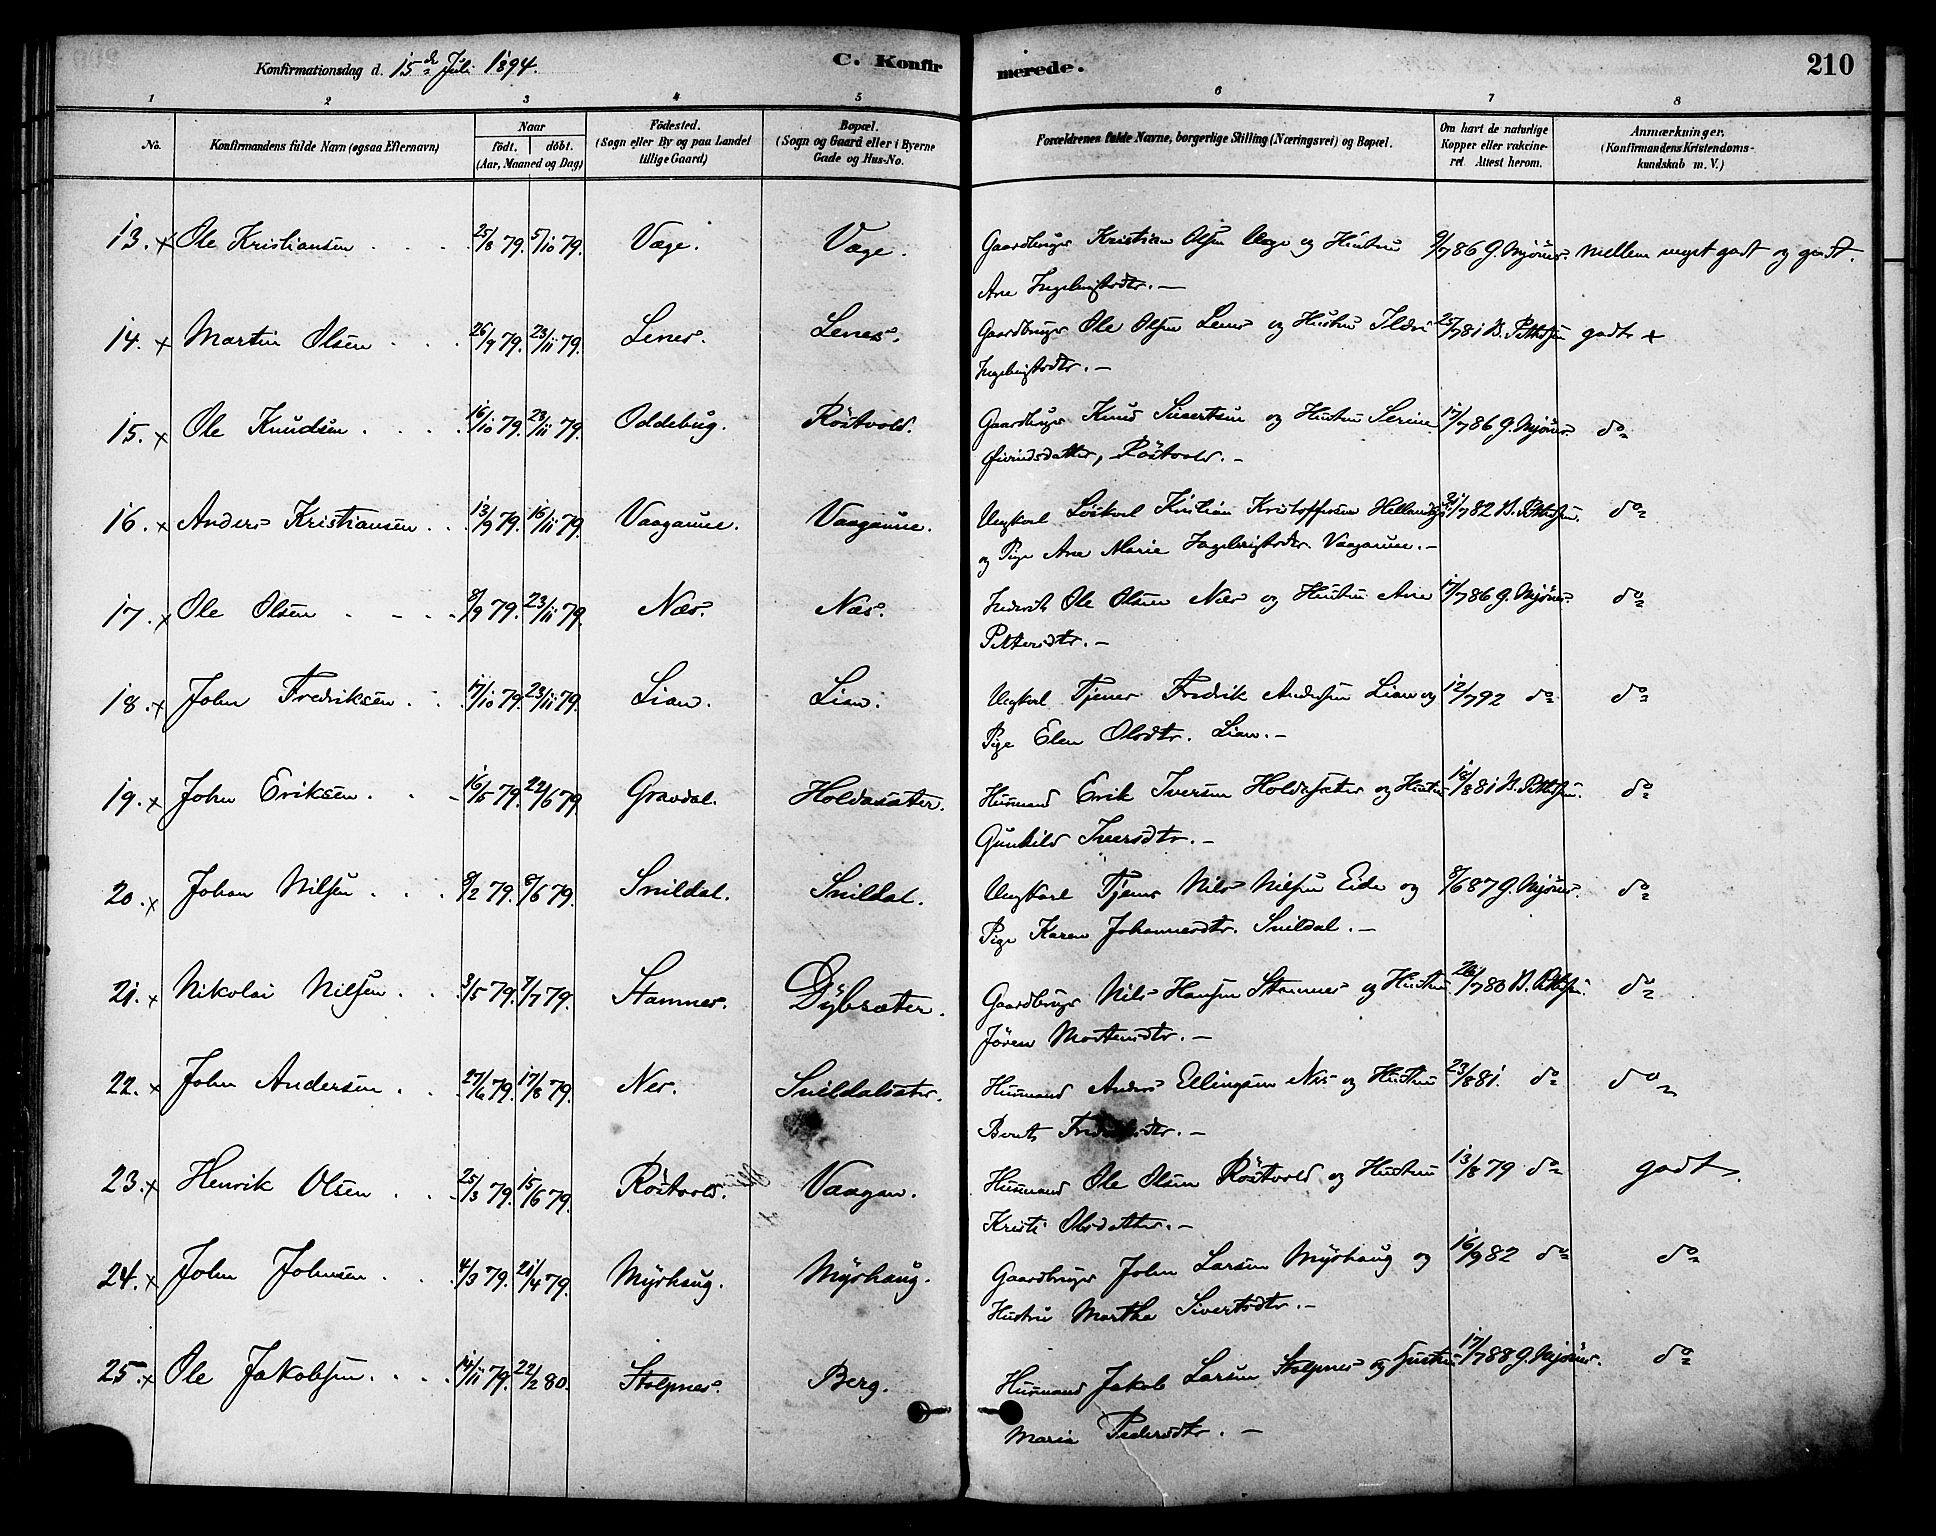 Konfirmationsdag d. 15de Juli 1894. C. Konfirmerede. 210
1 2 3 4 5 6 7 8
No. Konfirmandens fulde Navn (ogsaa Efternavn) Naar födt. döbt. (Aar, Maaned og Dag) Födested. (Sogn eller By og paa Landet tillige Gaard) Bopæl. (Sogn og Gaard eller i Byerne Gade og Hus-No. Forældrenes fulde Navne, borgerlige Stilling (Næringsvei) og Bopæl. Om havt de naturlige Kopper eller vakcineret. Attest herom. Anmærkninger. (Konfirmandens Kristendomskundskab m. V.)
13. x Ole Kristiansen 25/8 79. 5/10 79. Vage. Vage. Gaardbruger Kristian Olsen Vage og Hustru 9/7 86 G. Mjönes mellem meget godt og godt.
Ane Ingebrigtsdtr. —
14. x Martin Olsen 26/9 79. 23/11 79. Lenes. Lenes. Gaardbruger Ole Olsen Lenes og Hustru Ildri 25/7 81 B. Pettersen godt x
Ingebrigtsdtr. —
15. x Ole Knudsen 16/10 79. 23/11 79. Oddebug. Röstvold. Gaardbruger Knud Sivertsen og Hustru Serine 17/7 86 G. Mjönes. do
Øivindsdatter, Röstvold. —
16. x Anders Kristiansen 13/9 79. 16/11 79. Vaagaune. Vaagaune. Ungkarl Löskarl Kristian Kristoffersen 31/7 82 B. Pettersen. do
og Pige Ane Marie Ingebrigtsdtr. Vaagaune. —
17. x Ole Olsen 8/9 79. 23/11 79. Næs. Næs. Inderst Ole Olsen Næs og Hustru Ane 17/7 86 G. Mjönes. do
Pettersdtr. —
18. x John Fredriksen 17/10 79. 23/11 79. Lian. Lian. Ungkarl Tjener Fredrik Andersen Lian og 12/7 92 do do
Pige Elen Olsdtr. Lian. —
19. x John Eriksen 16/5 79. 22/6 79. Gravdal. Holdasæter. Husmand Erik Iversen Holdasæter og Hustru 18/8 81 B. Pettersen. do
Gunhild Iversdtr. —
20. x Johan Nilsen 8/2 79. 8/6 79. Snildal. Snildal. Ungkarl Tjener Nils Nilsen Eide og 8/6 87 G. Mjönes. do
Pige Karen Johannesdtr. Snildal. —
21. x Nikolai Nilsen 3/5 79. 7/7 79. Stamnes. Dybsæter. Gaardbruger Nils Hansen Stamnes og Hustru 26/7 80 B. Pettersen. do
Jören Mortensdtr. —
22. x John Andersen 27/6 79. 17/8 79. Nes. Snildalsæter. Husmand Anders Ellingsen Nes og Hustru 23/8 81. do do
Berit
23. x Henrik Olsen 25/3 79. 15/6 79. Röstvold. Vaagan. Husmand Ole Olsen Röstvold og Hustru 13/8 79 do godt.
Kristi Olsdatter. —
24. x John Johnsen 4/3 79. 21/4 79. Myrhaug. Myrhaug. Gaardbruger John Larsen Myrhaug og 16/9 82 do do
Hustru Martha Sivertsdtr. —
25. x Ole Jakobsen 14/11 79. 22/2 80. Stolpnes. Berg. Husmand Jakob Larsen Stolpnes og Hustru 17/7 88 G. Mjönes. do
Maria Pedersdtr. —